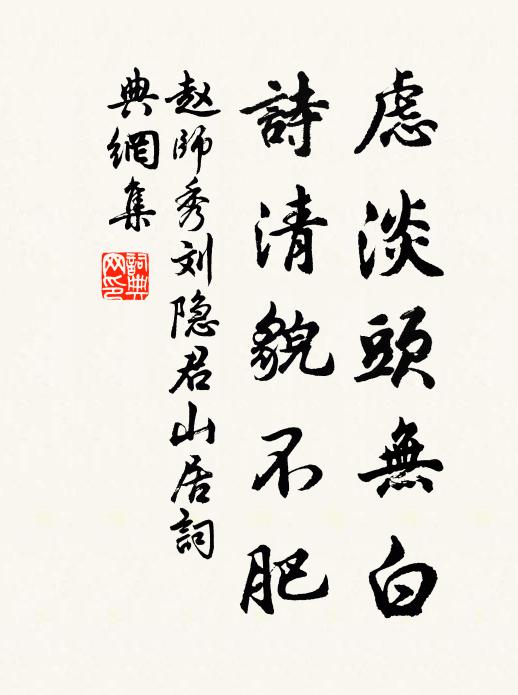 慮淡頭無白
詩清貌不肥
赵師秀刘隐君山居詞
典網集
詞典
网印